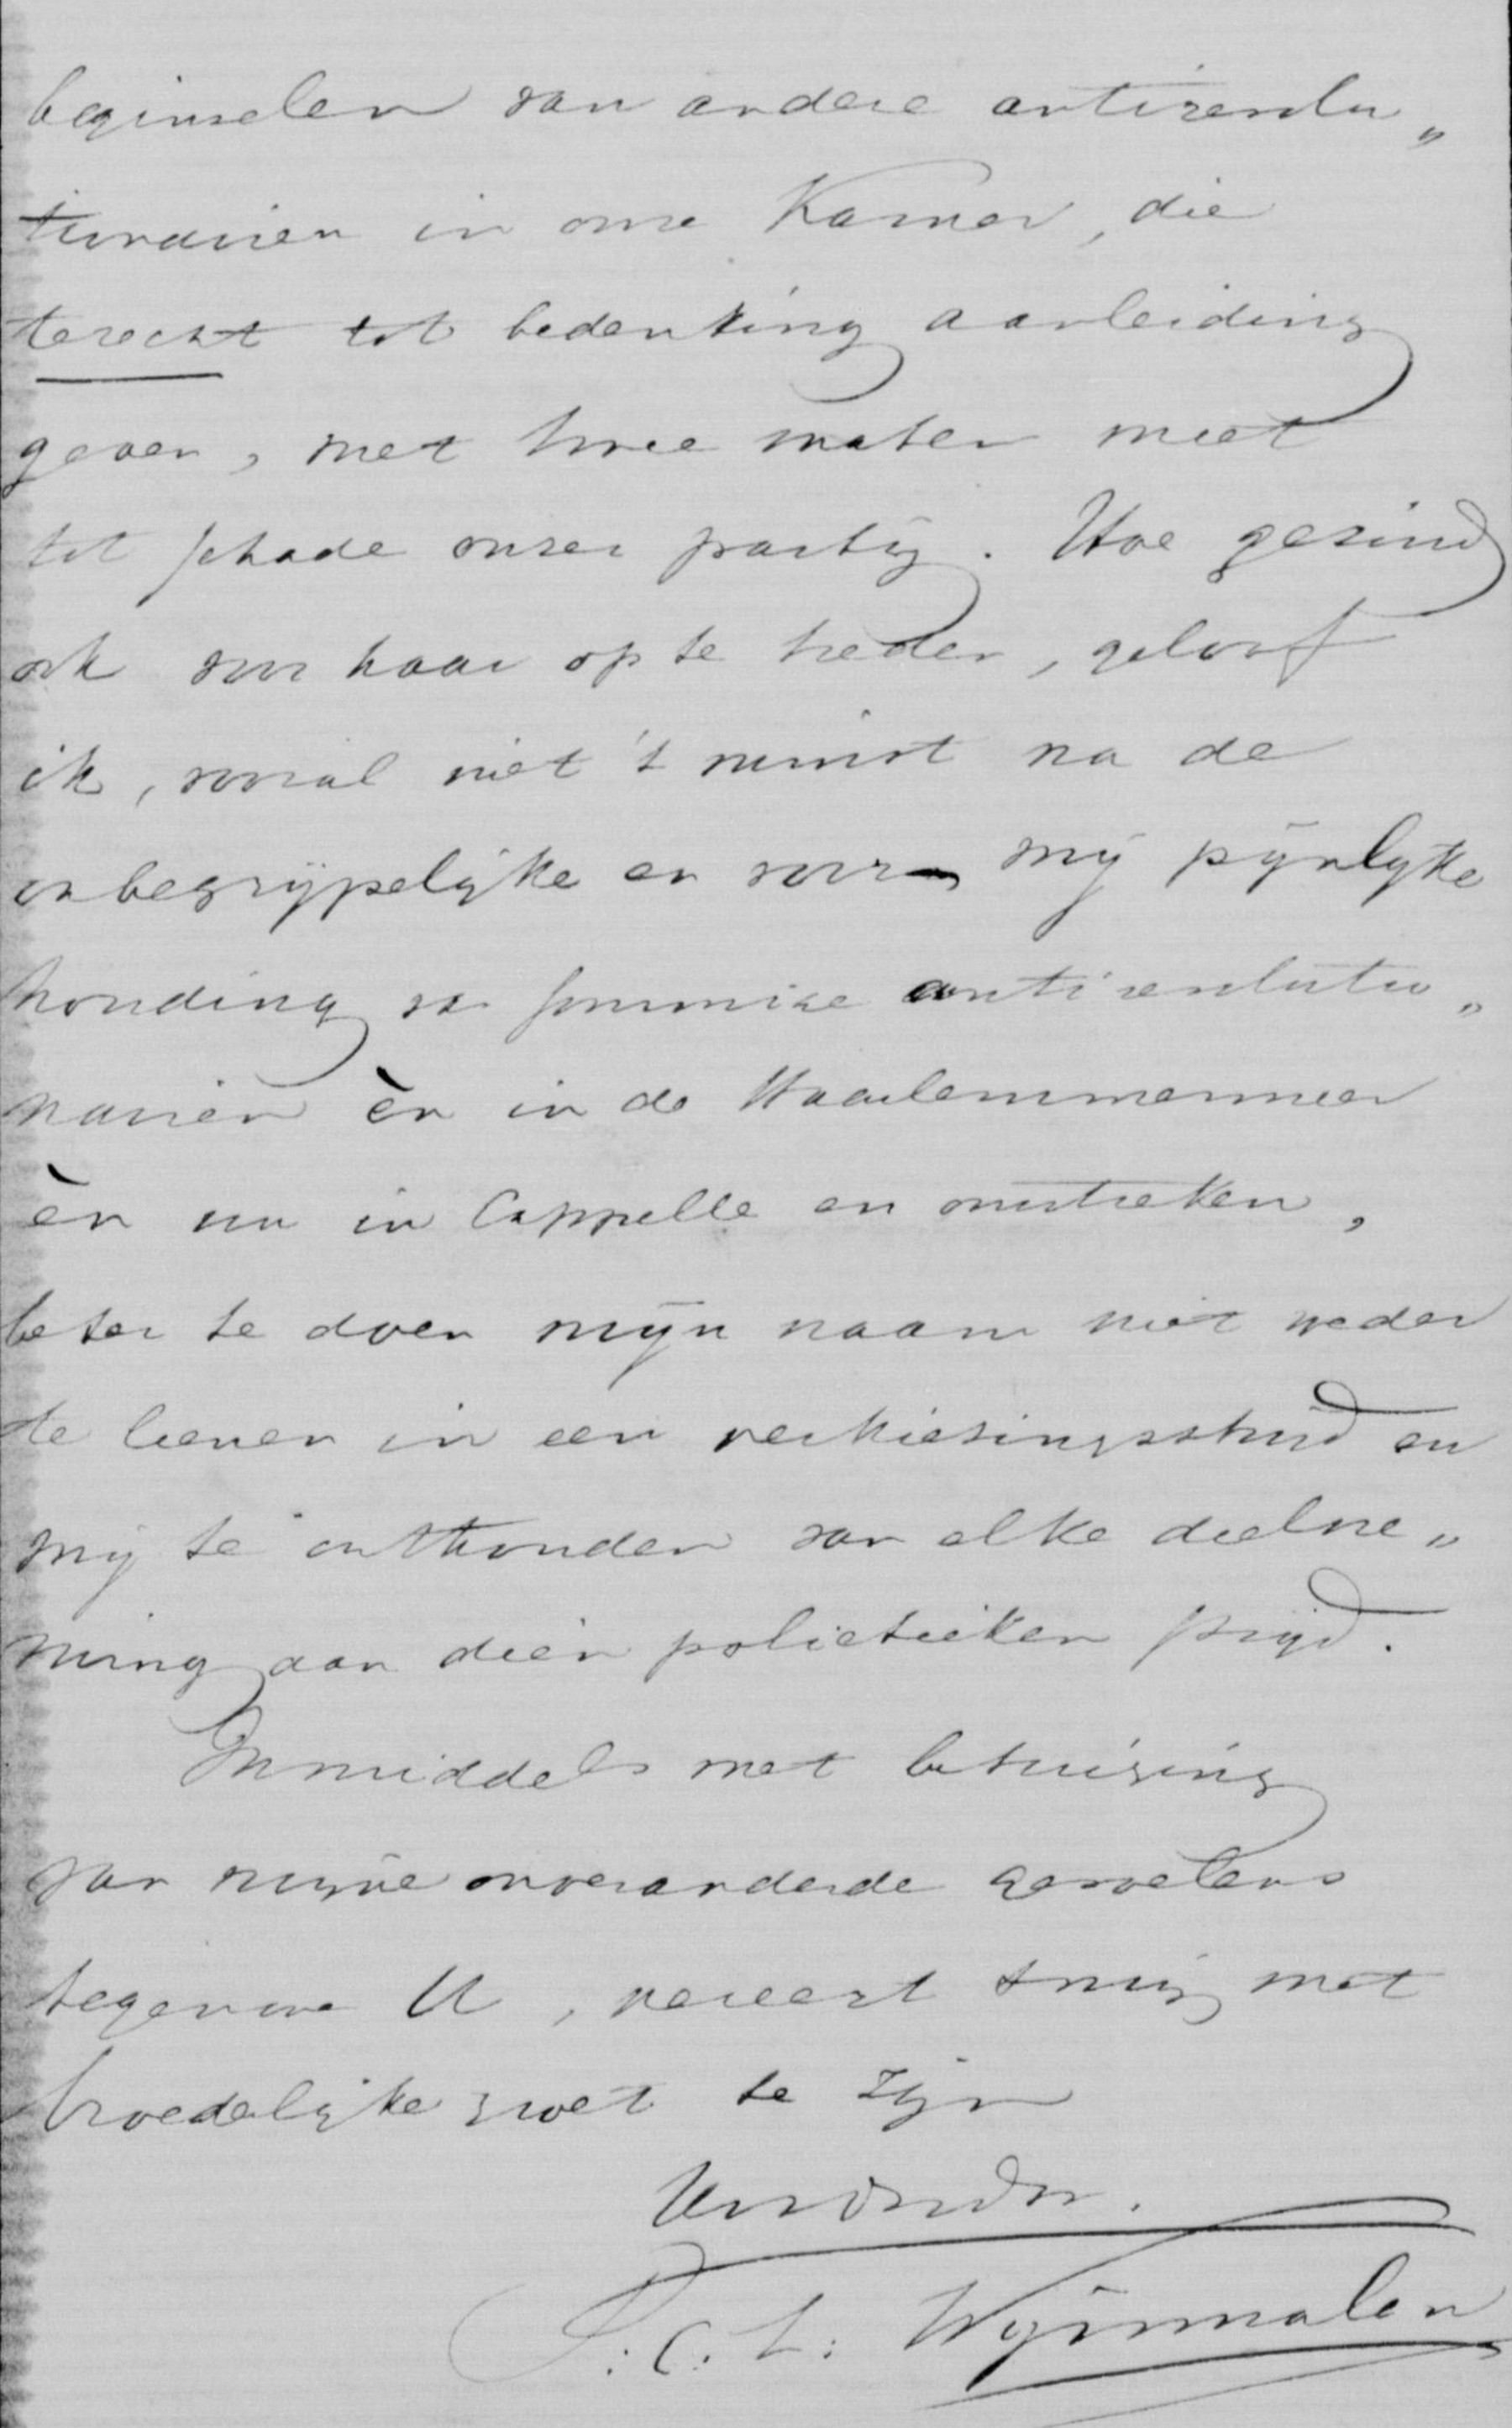 beginselen van andere antirevolu„
tionairen in onze Kamer, die
terecht tot bedenking aanleiding
geven, met twee maten meet
tot schade onzer partij. Hoe gezind
ook voor haar op te treden, geloof
ik, vooral niet 't minst na de
onbegrijpelijke en voor mij pijnlijke
houding van sommige antirevolutio„
nairen èn in de Haarlemmermeer
èn nu in Cappelle en omstreken,
beter te doen mijn naam niet weder
te leenen in een verkiezingsstrijd en
mij te onthouden van elke deelne„
ming aan dien polietieken strijd.
Inmiddels met betuiging
van mijne onveranderde gevoelens
tegenover U, vereert zich met
broederlijke groet te zijn
Uw vriend
J. C. L. Wijnmalen